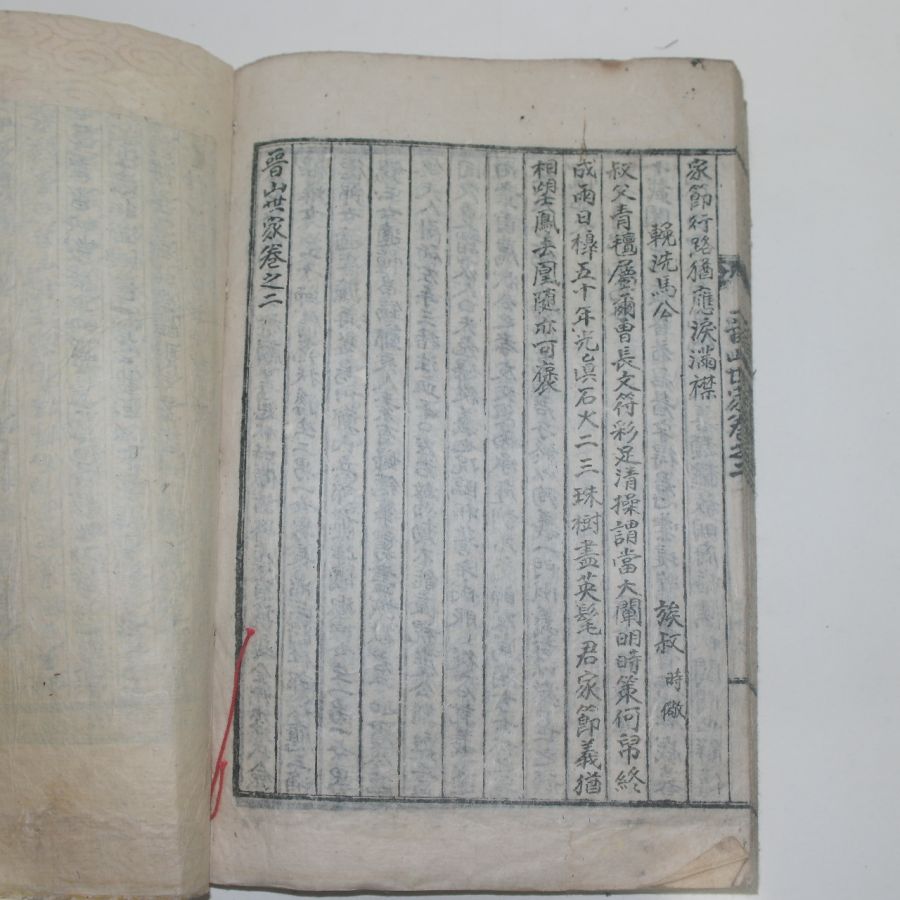 家節行路猶應淚滿襟
輓洗馬公 族叔 時儆
叔父青氊屬爾曹長文符彩足清操謂當大闡明時策何帛終
成兩日槹五十年光眞石火二三珠樹盡英髦君家節義猶
相望鳳去凰隨亦可褒
晉山世家卷之二
晉山世家卷之二